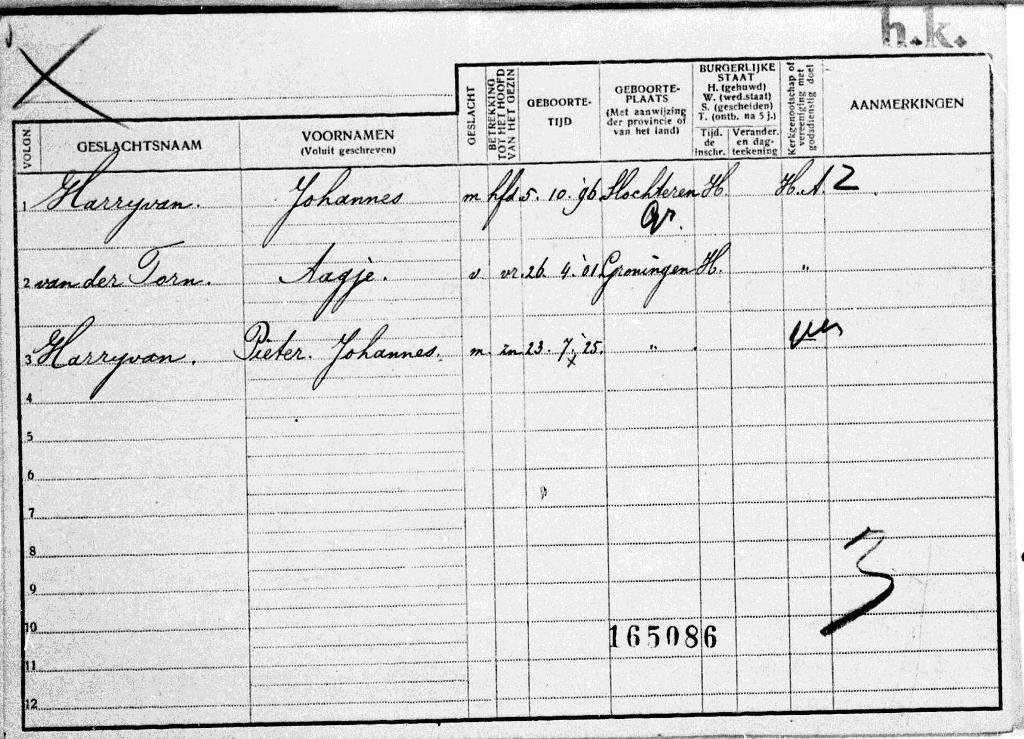 h.k.
VOLGN. GESLACHTSNAAM VOORNAMEN (Voluit geschreven) GESLACHT BETREKKING TOT HET HOOFD VAN HET GEZIN GEBOORTE-TIJD GEBOORTE-PLAATS (Met aanwijzing der provincie of van het land) BURGERLIJKE STAAT H. (gehuwd) W. (wed.staat) S. (gescheiden) T. (ontb. na 5 j.) Tijd. de inschr. Verander. en dag-teekening Kerkgenootschap of vereeniging met godsdienstig doel AANMERKINGEN
1 Harryvan. Johannes m hfd. 5. 10. '96 Slochteren H. H. A. 2
Gr.
2 van der Torn. Aagje. v. vr. 26. 4. '01 Groningen H. "
3 Harryvan. Pieter. Johannes. m. zn 23. 7. '25. "
4
5
6
7
8
9
10
165086
11
12
3